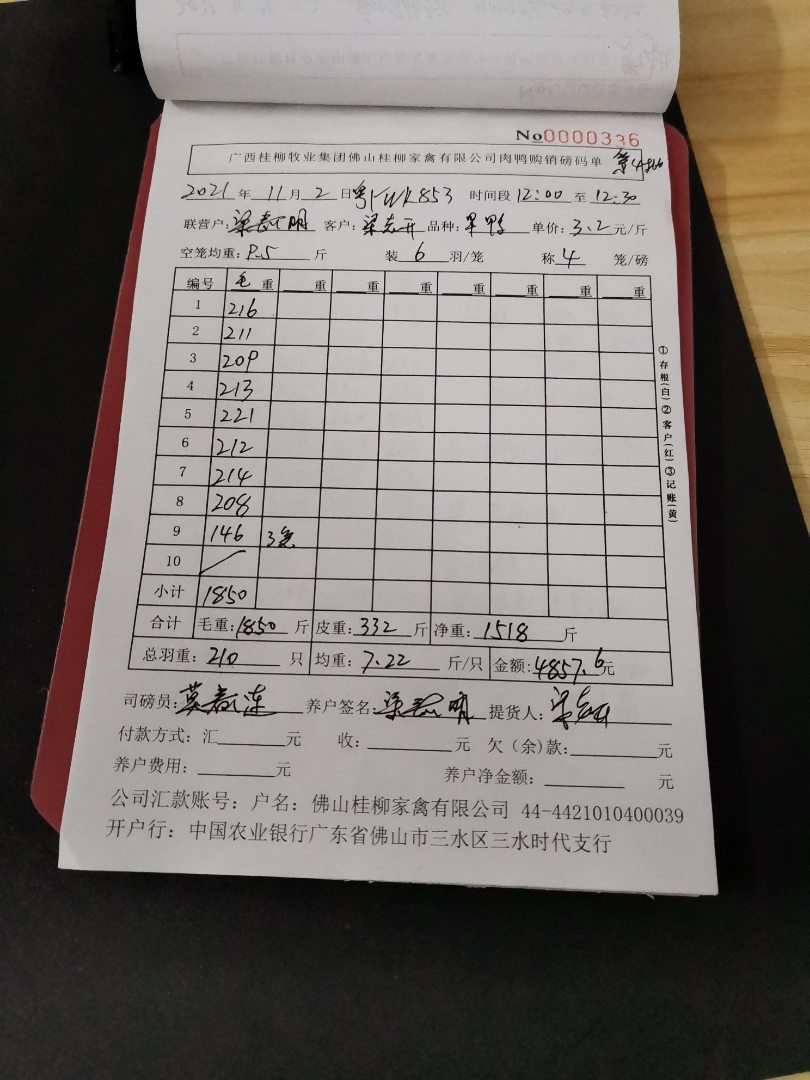 No0000336
广西桂柳牧业集团佛山桂柳家禽有限公司肉鸭购销磅码单
2021年11月2日 853 时间段12:00至12:30
联营户: 客户: 品种: 单价:3.2元/斤
空笼均重: 斤 装6羽/笼 称4笼/磅
编号 毛重 重 重 重 重 重 重 重
1 216
2 211
3 209
4 213
5 221
6 212
7 214
8 208
9 146
10
小计 1850
合计 毛重:1850斤 皮重:332斤 净重:1518斤
总羽重:210只 均重:7.22斤/只 金额:4857.6元
司磅员: 养户签名: 提货人:
付款方式:汇 元 收: 元 欠(余)款: 元
养户费用: 元 养户净金额: 元
公司汇款账号:户名:佛山桂柳家禽有限公司 44-4421010400039
开户行:中国农业银行广东省佛山市三水区三水时代支行
①存根(白)②客户(红)③记账(黄)